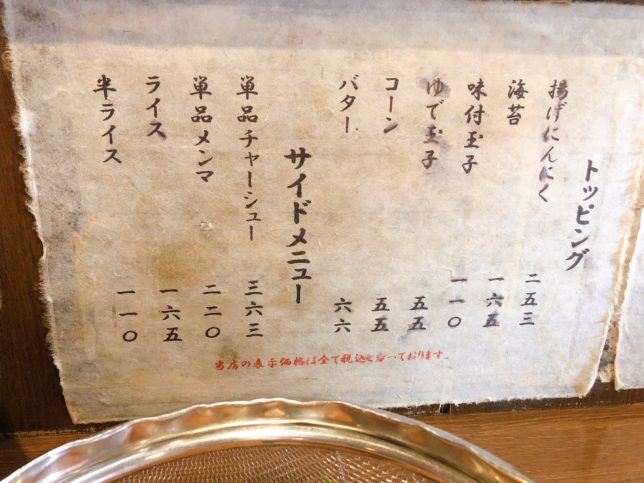 トッピング
揚げにんにく 二五三
海苔 一六五
味付玉子 一一〇
ゆで玉子 五五
コーン 五五
バター 六六
サイドメニュー
単品チャーシュー 三六三
単品メンマ 二二〇
ライス 一六五
半ライス 一一〇
当店の表示価格は全て税込となっております。